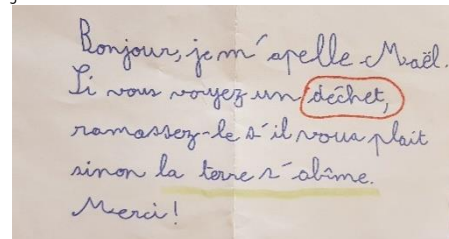 Bonjour, je m'apelle Maël.
Si vous voyez un déchet,
ramassez-le s'il vous plait
sinon la terre s'abîme.
Merci!